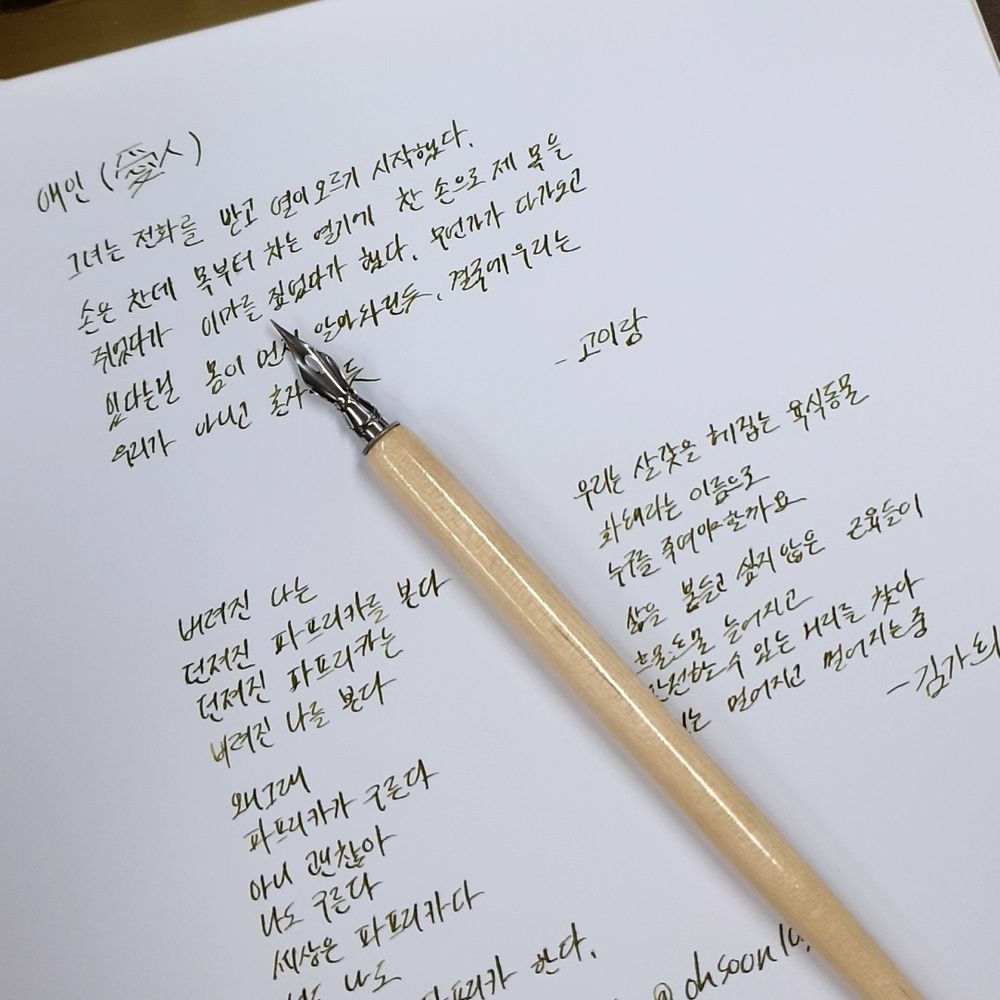 애인 (愛人)
그녀는 전화를 받고 열이 오르기 시작했다.
손은 찬데 목부터 차는 열기에 찬 손으로 제 목을
쥐었다가 이마를 짚었다가 했다. 무언가가 다가오고
있다는걸 몸이 먼저 알아차린듯, 결국에 우리는
우리가 아니고 혼자 듯
- 고이랑
우리는 살갗을 헤집는 육식동물
화해라는 이름으로
누구를 죽여야할까요
삶을 붙들고 싶지 않은 근육들이
흐물흐물 늘어지고
안전할 수 있는 거리를 찾아
멀어지고 멀어지는중
- 김가희
버려진 나는
던져진 파프리카를 본다
던져진 파프리카는
버려진 나를 본다
왜그래
파프리카가 구른다
아니 괜찮아
나도 구른다
세상은 파프리카다
나도
파프리카 한다.